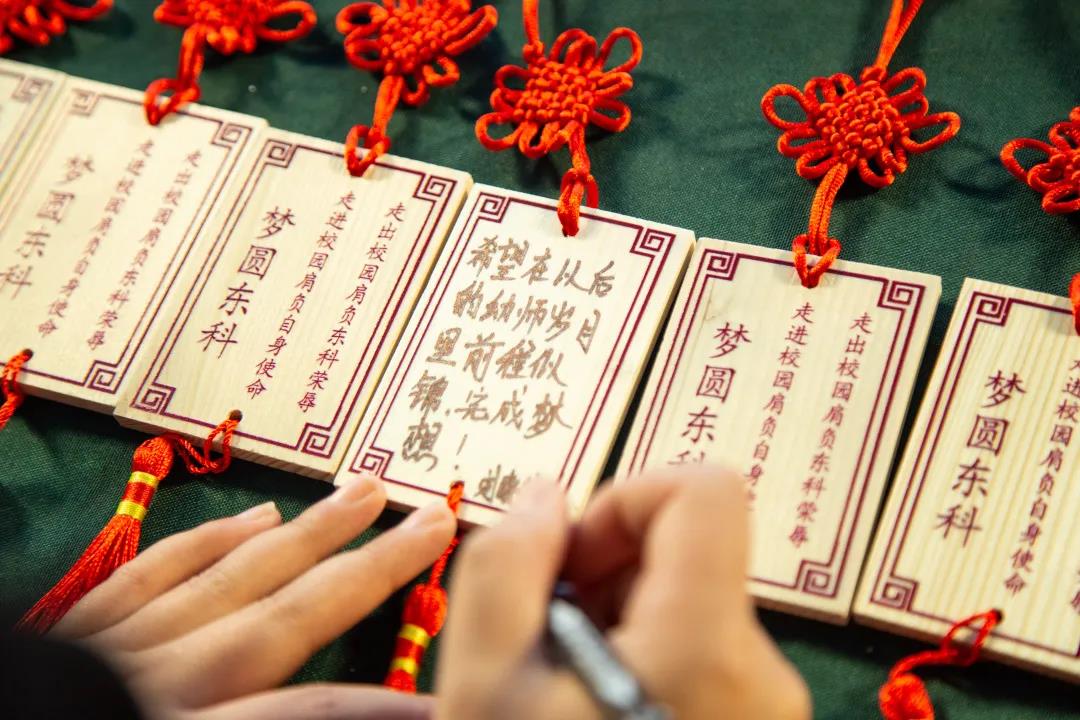 梦圆东科
走进校园肩负自身使命
走出校园肩负东科荣辱
梦圆东科
走进校园肩负自身使命
走出校园肩负东科荣辱
希望在以后
的幼师岁月
里前程似
锦,完成梦
想!
梦圆东
走进校园肩负自身
走出校园肩负东科荣辱
梦圆东科
进校园肩负自身使命